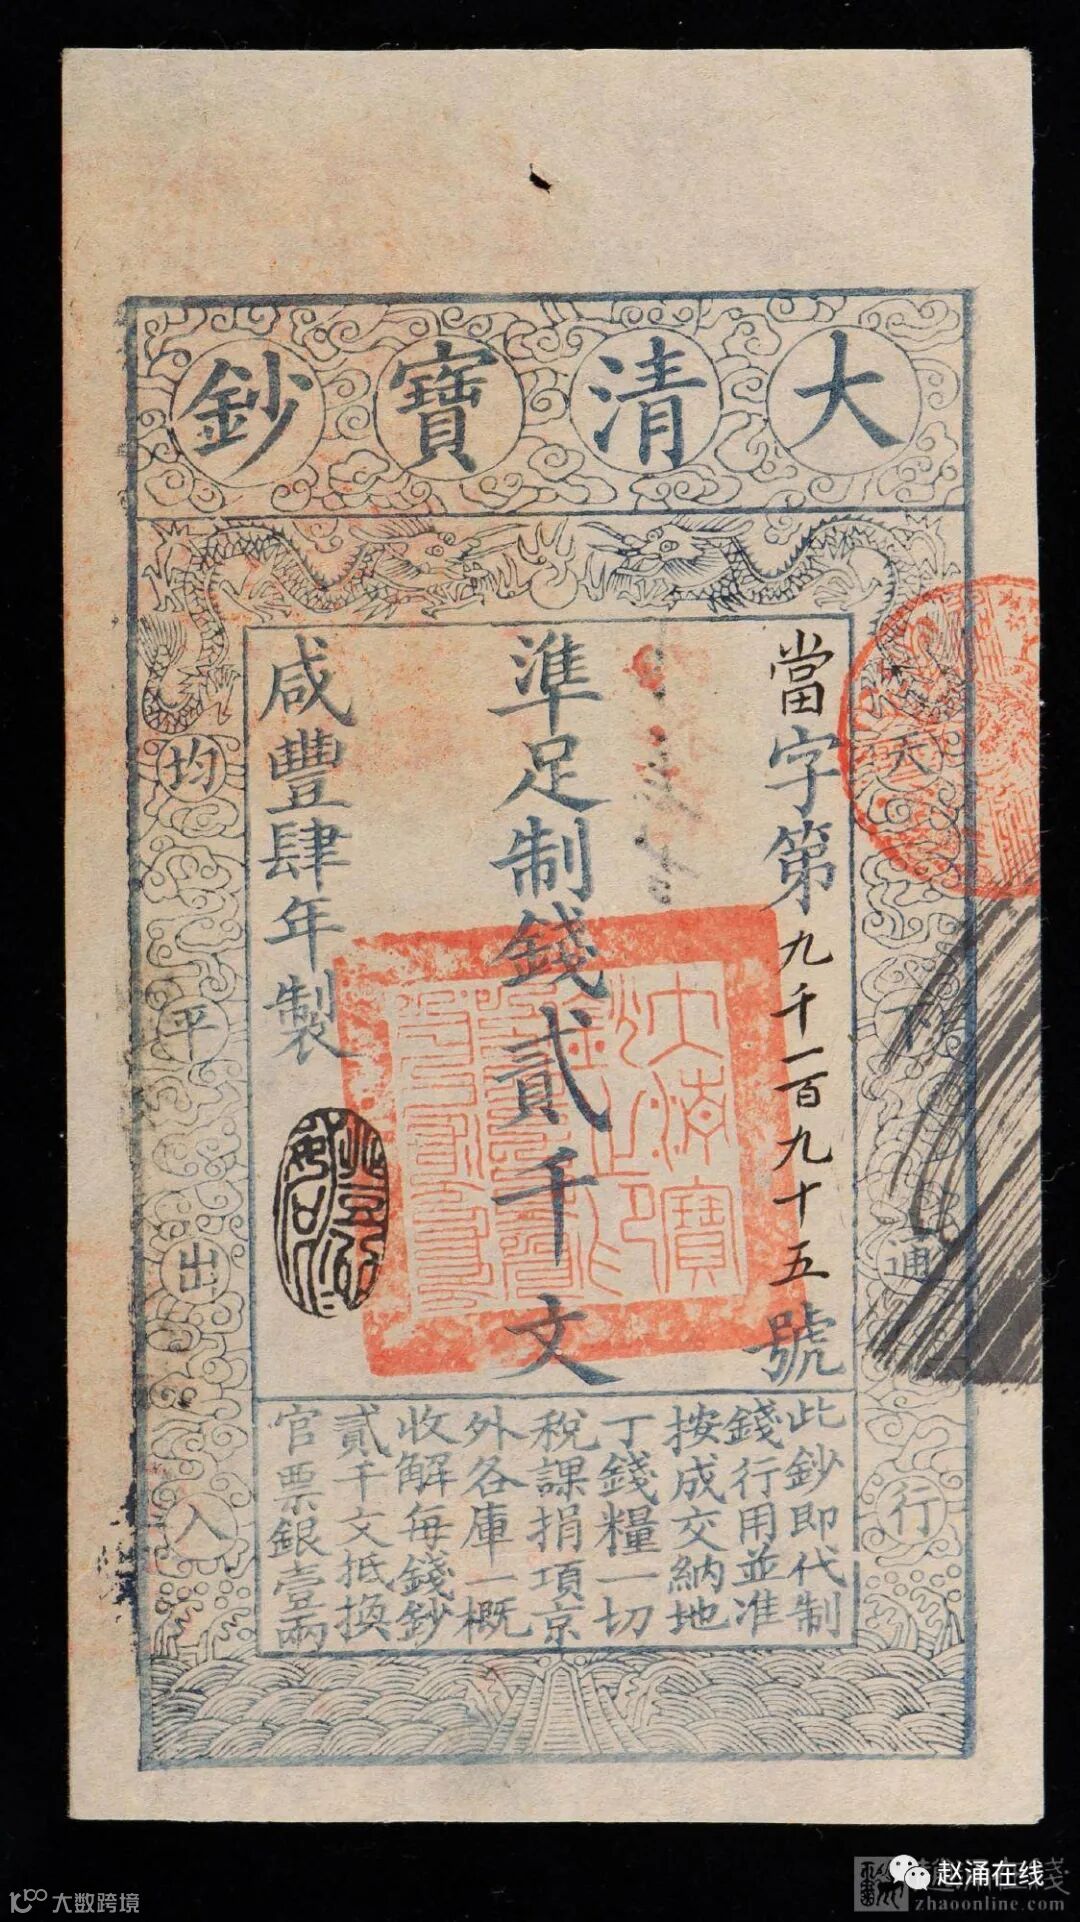 大清寶鈔
當字第九千一百九十五號
準足制錢貳千文
咸豐肆年製
天下通行
均平出入
大清寶鈔之印
此鈔即代制
錢行用並准
按成交納地
丁錢糧一切
稅課捐項京
外各庫一概
收解每錢鈔
貳千文抵換
官票銀壹兩
大数跨境
赵涌在线
zhaoonline.com